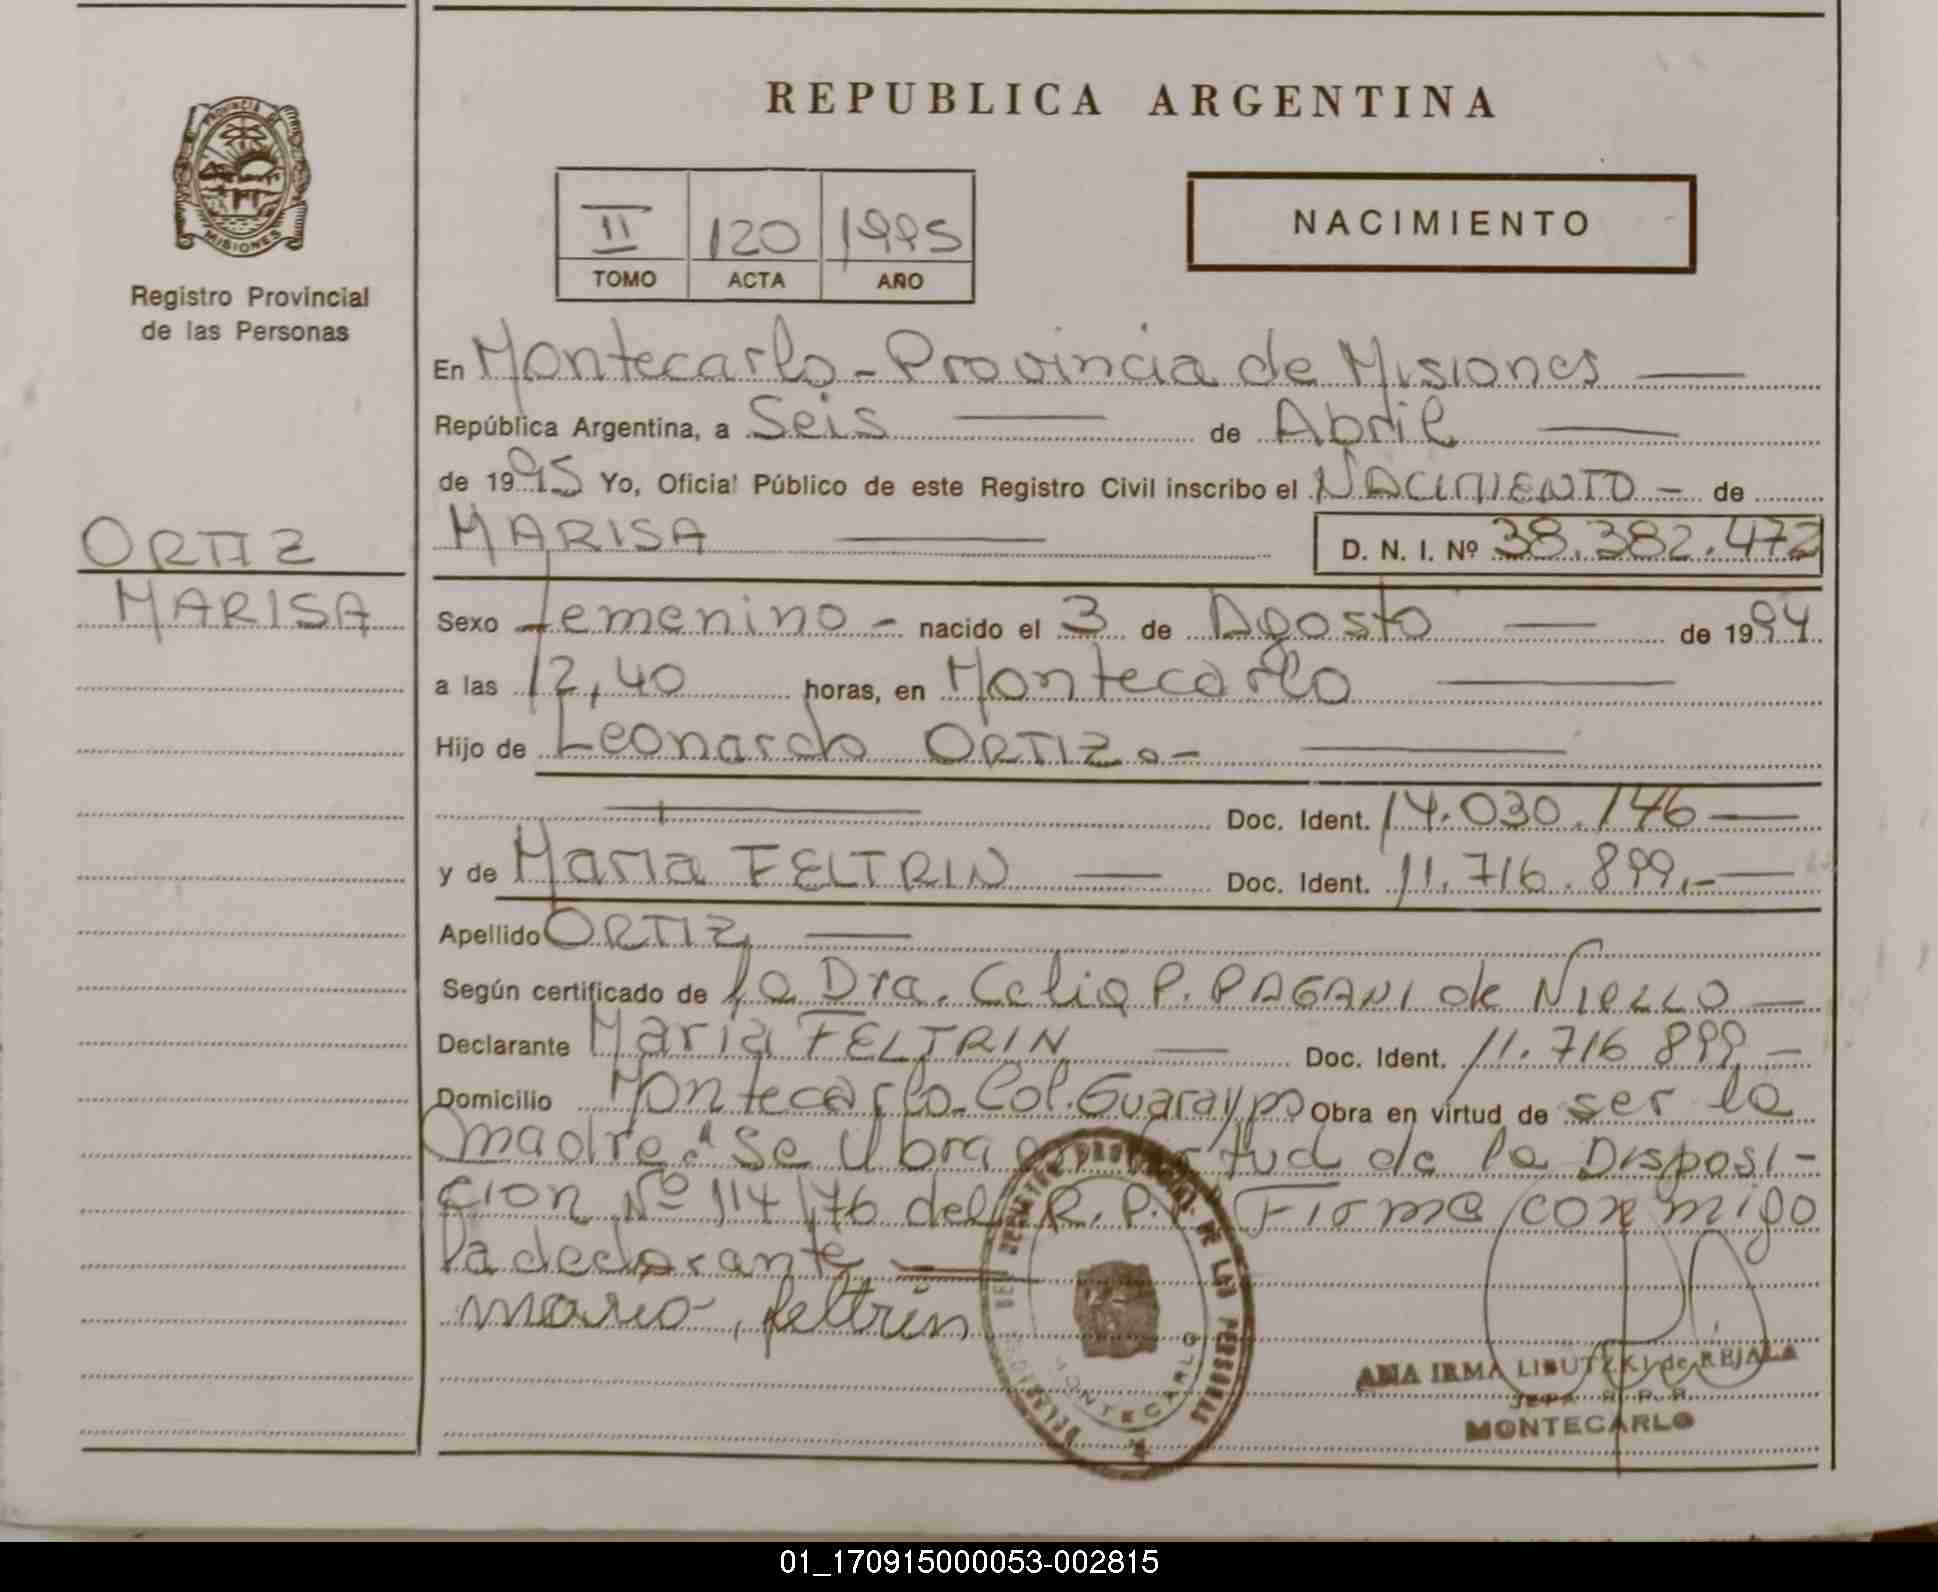 PROVINCIA DE
MISIONES
Registro Provincial
de las Personas
ORTIZ
MARISA
REPUBLICA ARGENTINA
II 120 1995
TOMO ACTA AÑO
NACIMIENTO
En Montecarlo - Provincia de Misiones
República Argentina, a Seis de Abril
de 1995 Yo, Oficial Público de este Registro Civil inscribo el NACIMIENTO - de
MARISA D. N. I. Nº 38.382.472
Sexo femenino - nacido el 3 de Agosto de 1994
a las 12,40 horas, en Montecarlo
Hijo de Leonardo ORTIZ.-
Doc. Ident. 14.030.146
y de Maria FELTRIN Doc. Ident. 11.716.899.-
Apellido ORTIZ
Según certificado de la Dra. Celia P. PAGANI de NIELLO
Declarante Maria FELTRIN Doc. Ident. 11.716 899
Domicilio Montecarlo. Col. Guaraypo Obra en virtud de ser la
madre. "Se Obra en virtud de la Disposi-
cion Nº 114/76 del R. P. P. Firma conmigo
la declarante
maria feltrin
REGISTRO PROVINCIAL DE LAS PERSONAS
MONTECARLO
ANA IRMA LIBUTZKI de REJALA
JEFA R. P. P.
MONTECARLO
01_170915000053-002815